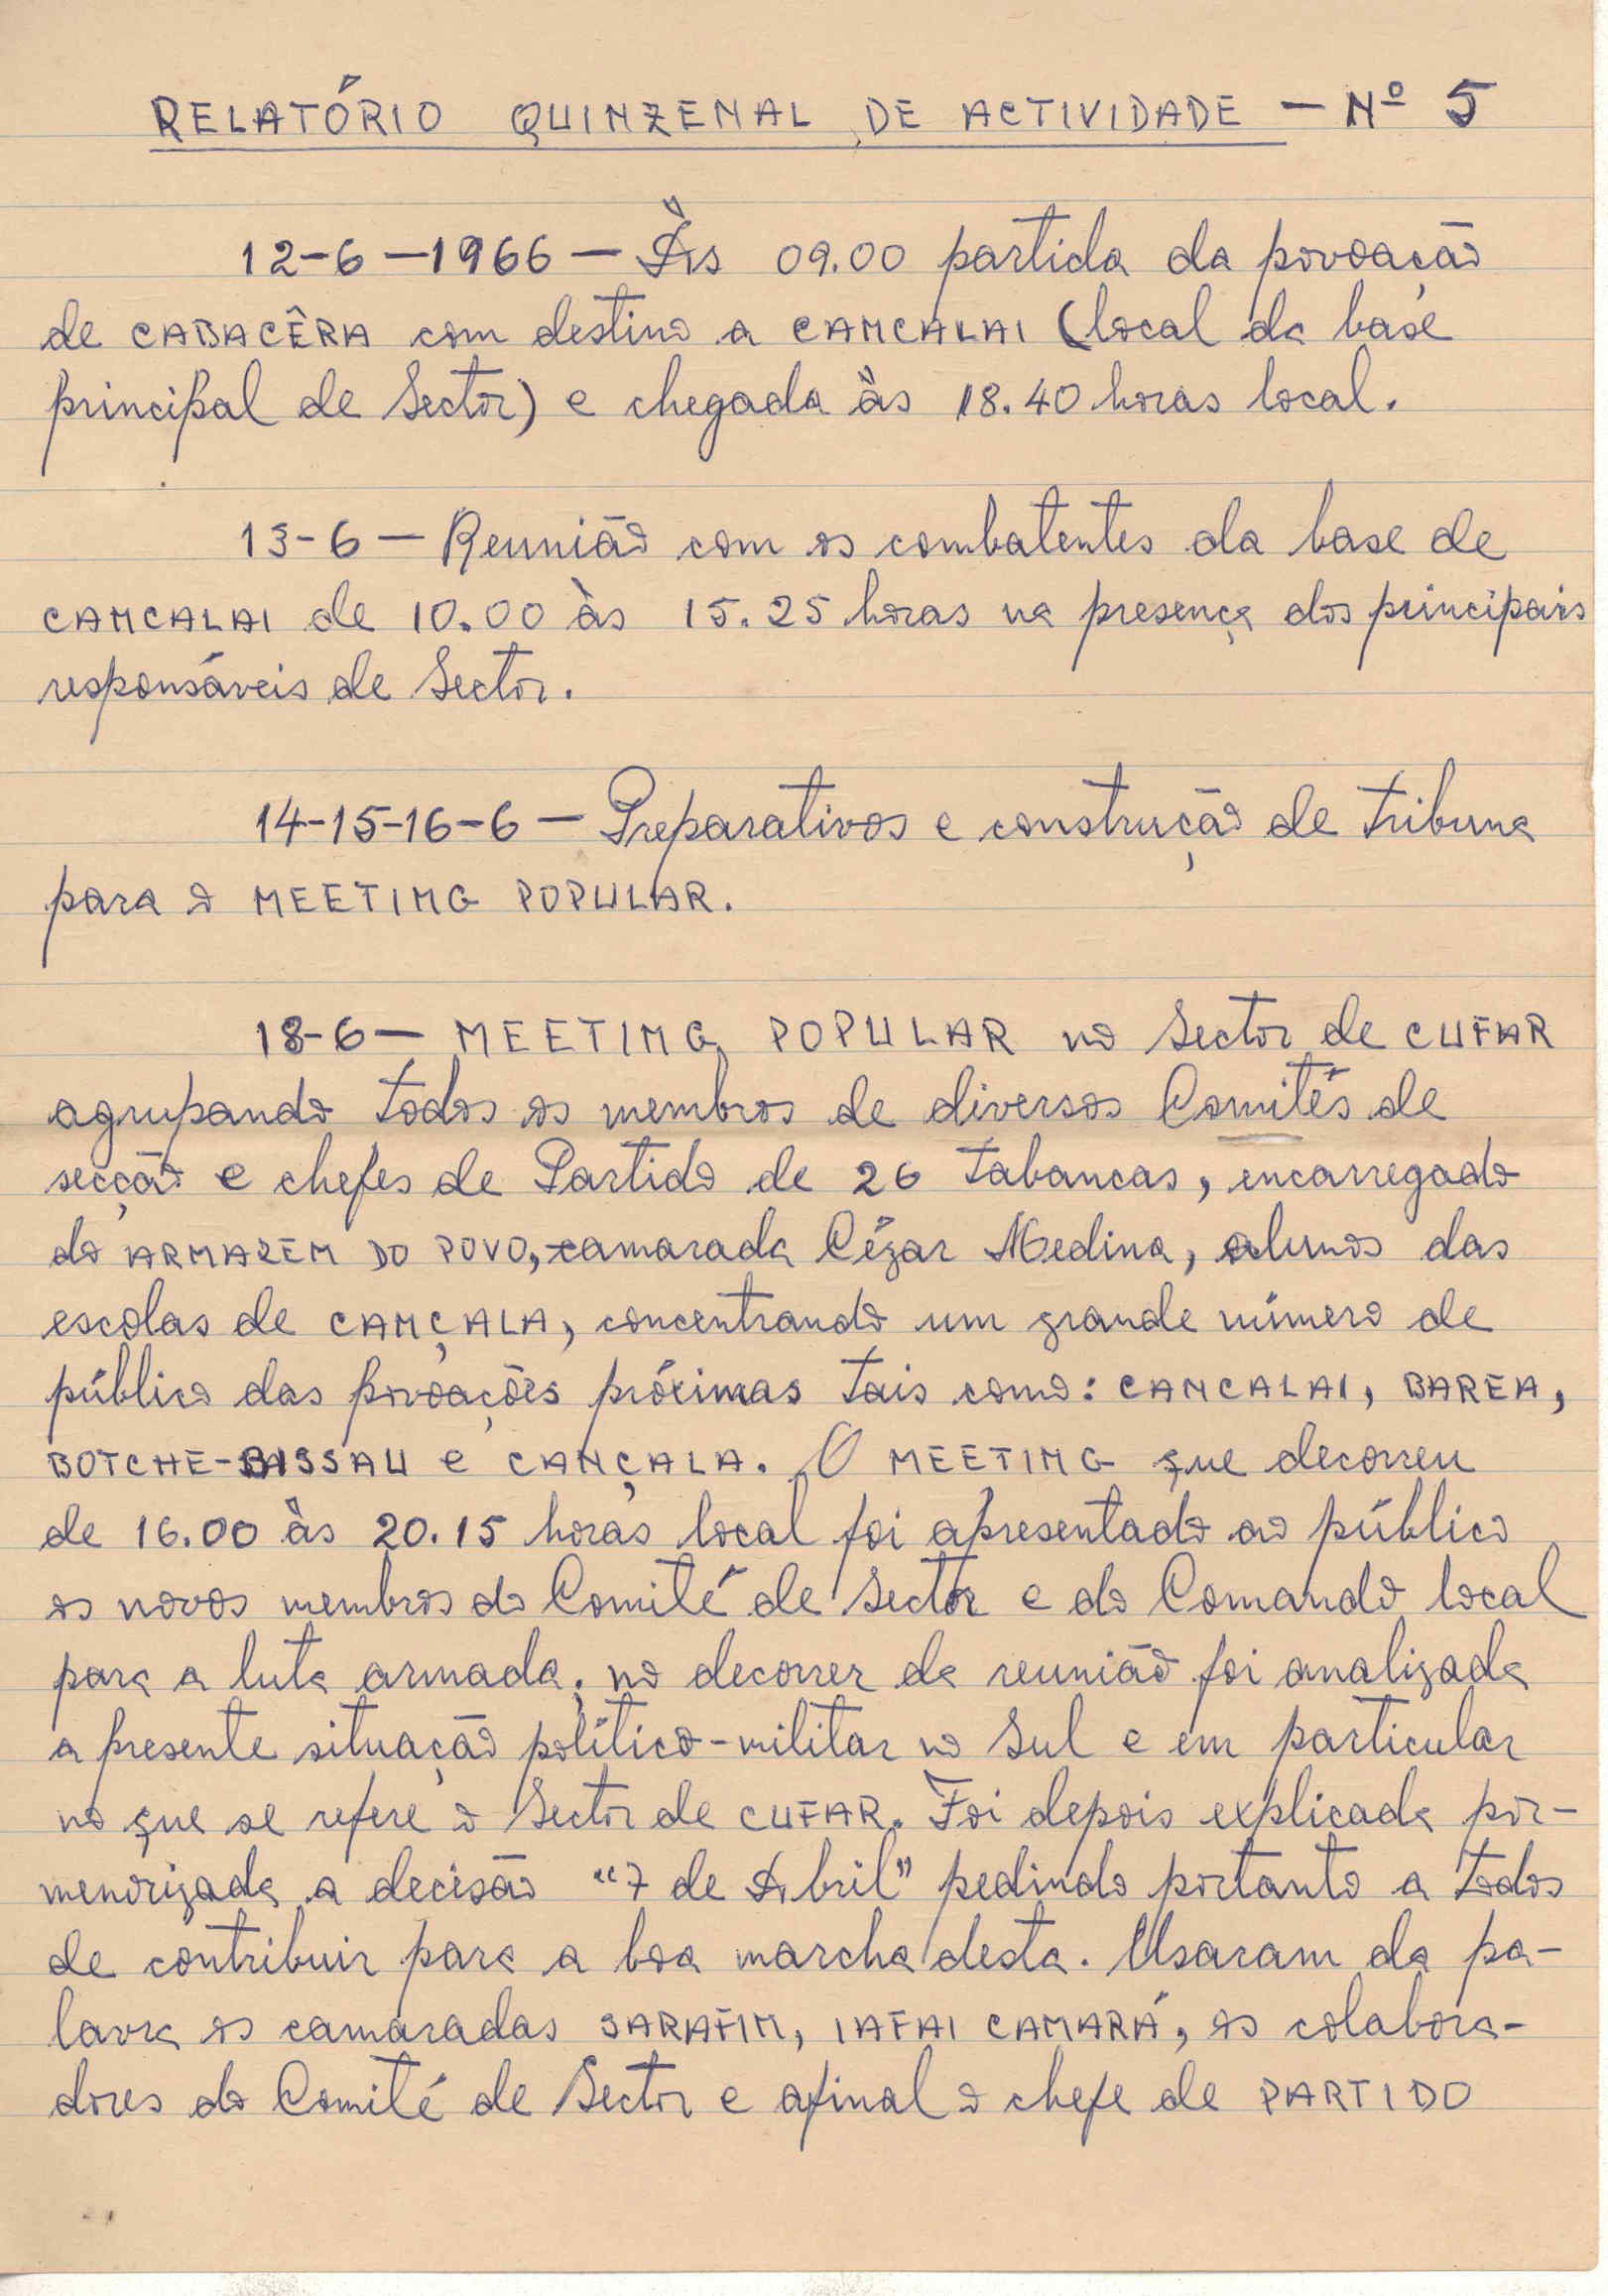 RELATÓRIO QUINZENAL DE ACTIVIDADE - Nº 5
12-6-1966 - Às 09.00 partida da povoação
de CABACÊRA com destino a CANCALAI (local da base
principal de Sector) e chegada às 18.40 horas local.
13-6 - Reunião com os combatentes da base de
CANCALAI de 10.00 às 15.25 horas na presença dos principais
responsáveis de Sector.
14-15-16-6 - Preparativos e construção de tribuna
para o MEETING POPULAR.
18-6 - MEETING POPULAR no Sector de CUFAR
agrupando todos os membros de diversos Comités de
secção e chefes de Partido de 26 tabancas, encarregado
do ARMAZEM DO POVO, camarada Cézar Medina, alunos das
escolas de CANÇALA, concentrando um grande número de
público das povoações próximas tais como: CANCALAI, BAREA,
BOTCHE-BISSAU e CANÇALA. O MEETING que decorreu
de 16.00 às 20.15 horas local foi apresentado ao público
os novos membros do Comité de Sector e do Comando local
para a luta armada; no decorrer da reunião foi analizada
a presente situação político-militar no Sul e em particular
no que se refere o Sector de CUFAR. Foi depois explicada por-
menorizada a decisão "7 de Abril" pedindo portanto a todos
de contribuir para a boa marcha desta. Usaram da pa-
lavra os camaradas SARAFIM, IAFAI CAMARÁ, os colabora-
dores do Comité de Sector e afinal o chefe de PARTIDO